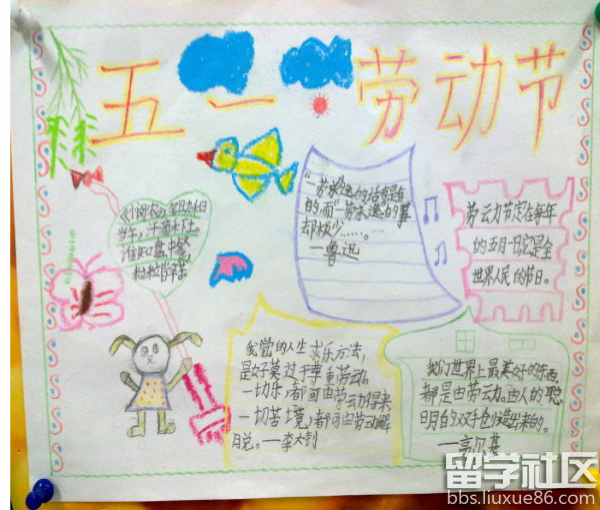 五一·劳动节
《悯农》锄禾日
当午，汗滴禾下土。
谁知盘中餐
粒粒皆辛苦
却极少……。
—鲁迅
劳动节定在每年
的五月一日它是全
世界人民的节日。
我觉的人生求乐方法，
是好莫过于尊重劳动。
一切乐，都可由劳动得来
一切苦境，都可由劳动解
说。—李大钊
我们世界上最美好的东西，
都是由劳动。由人的聪
明的双手创造出来的。
—高尔基
留学社区
bbs.liuxue86.com